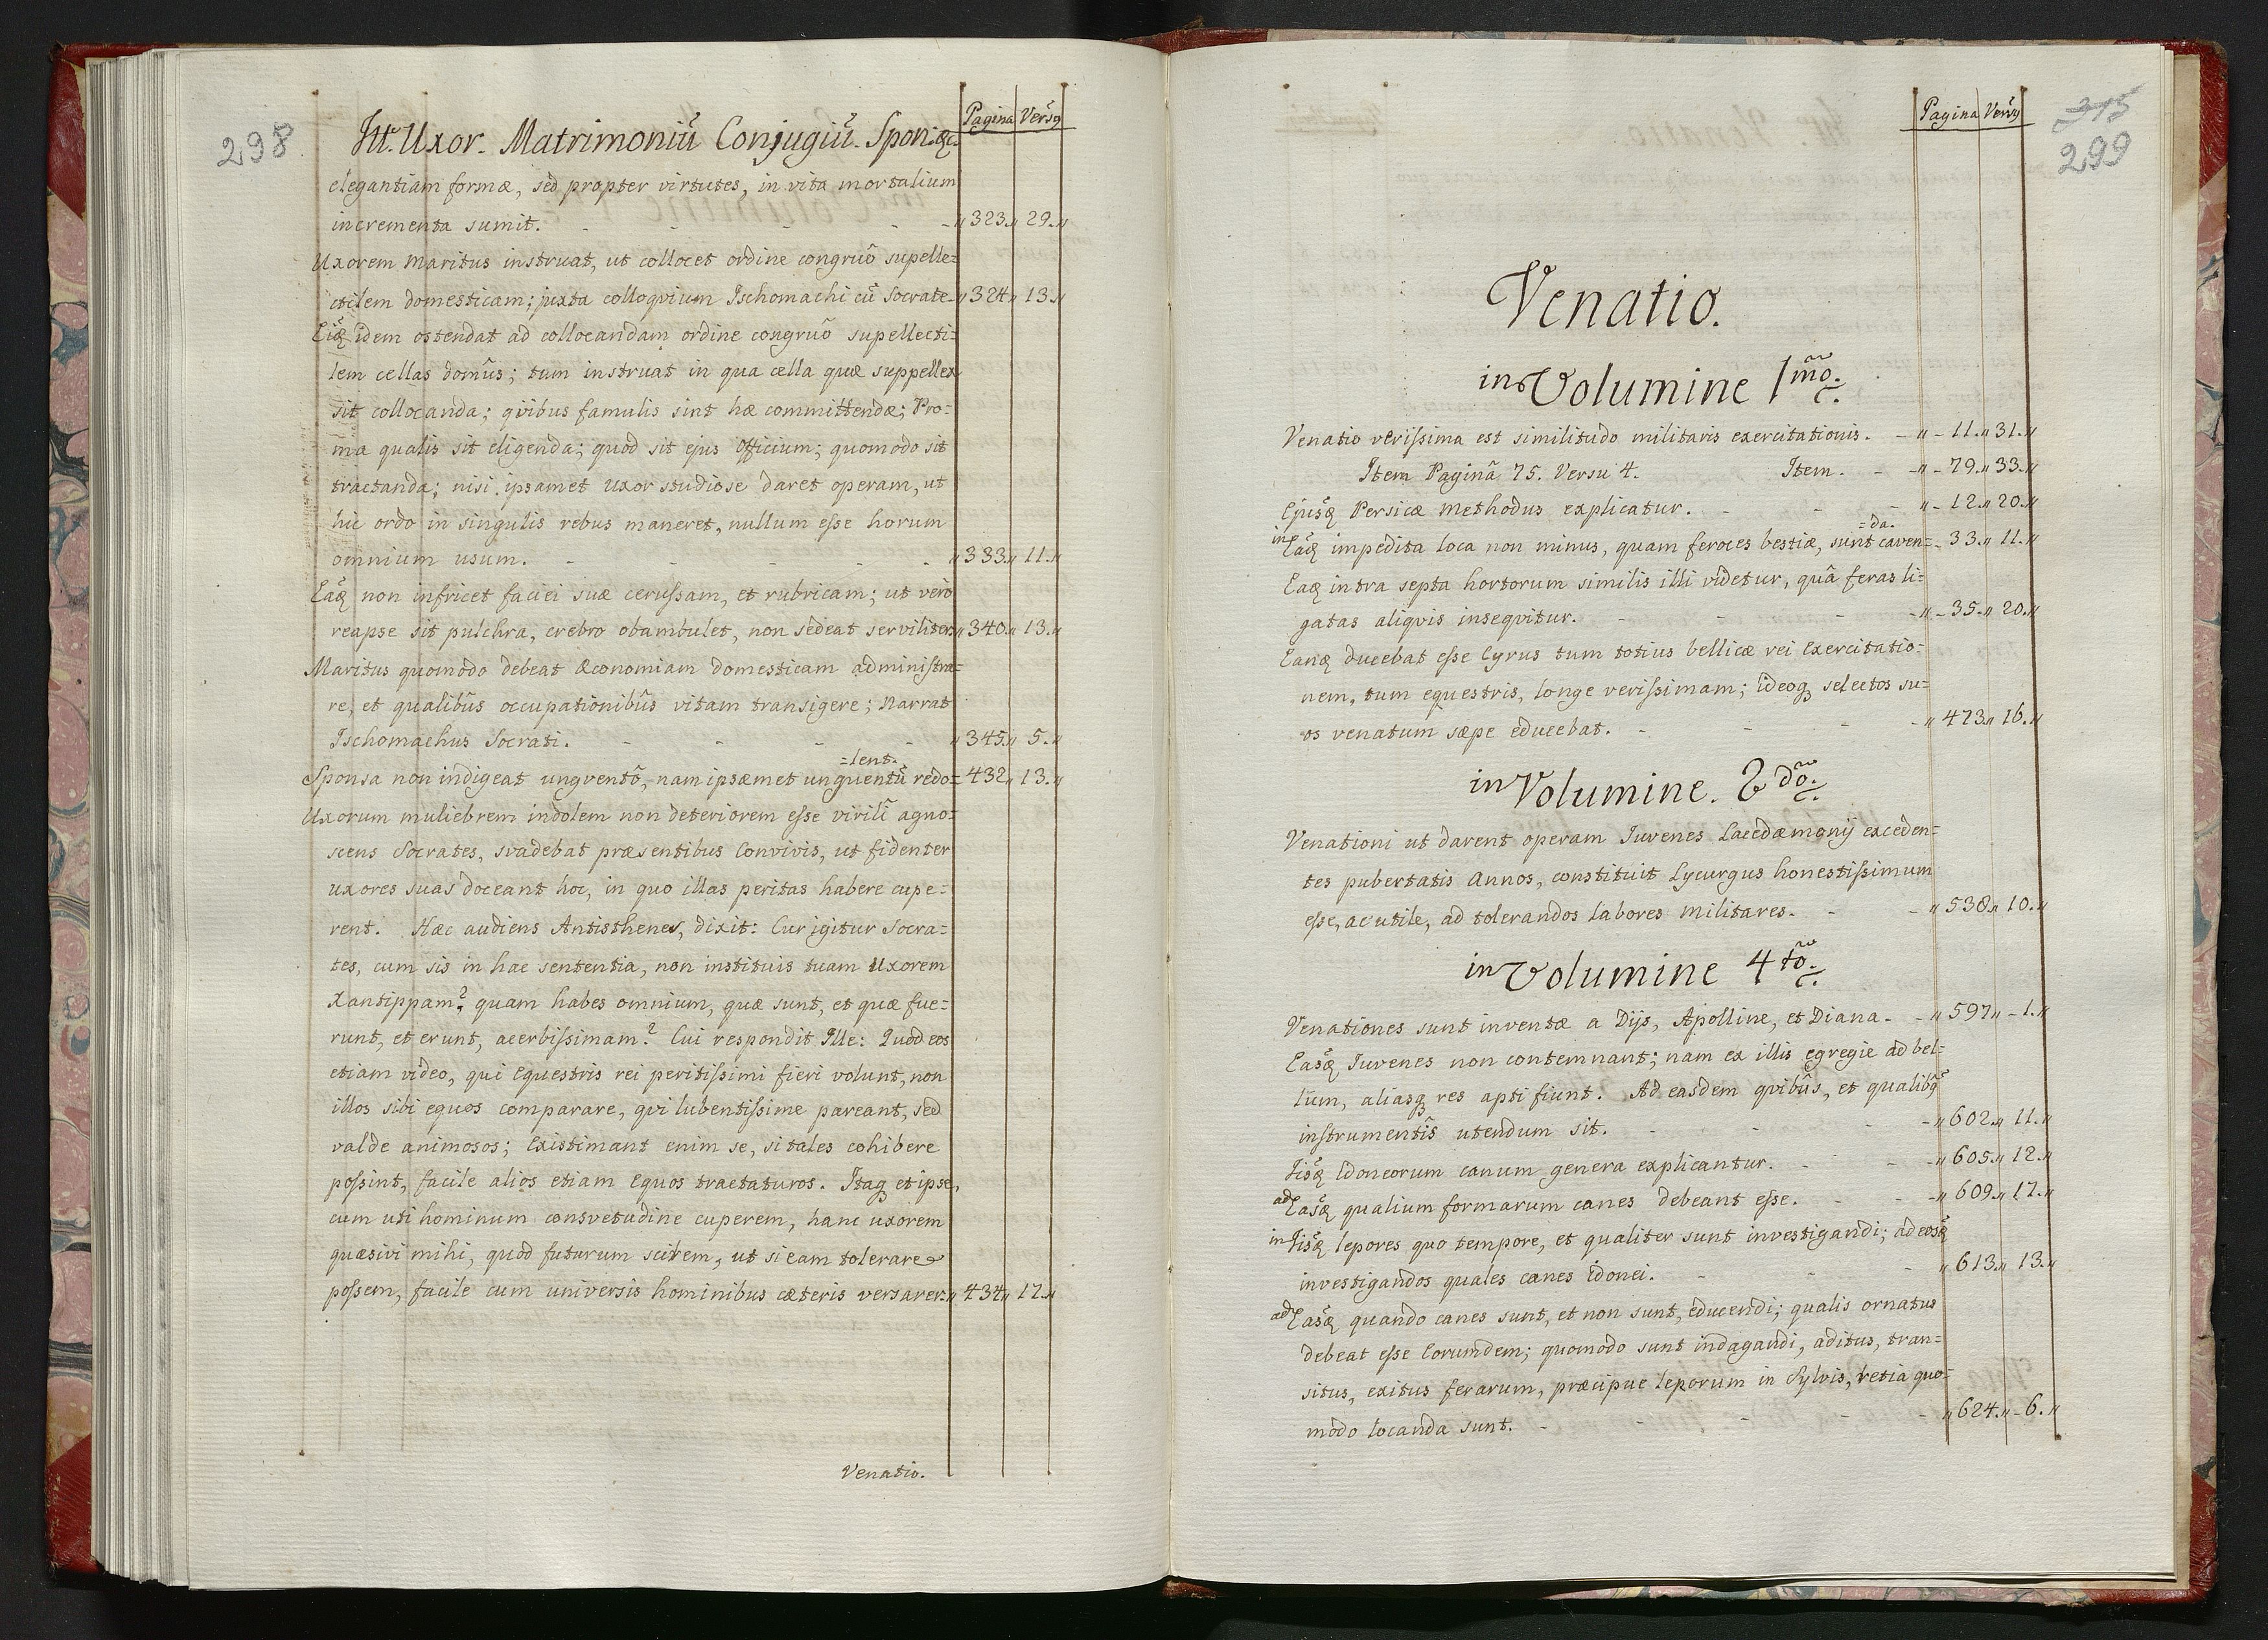 298
Pagina Versꝯ
Itt. Uxor. Matrimoniũ Conjugiũ. Spon. &c.
elegantiam formæ, sed propter virtutes, in vita mortalium
incrementa sumit. - - - - „323.„ 29.„
Uxorem Maritus instruat, ut collocet ordine congruô supelle=
ctilem domesticam; juxta colloqvium Ischomachi cũ Socrate- „324„ 13.„
idem ostendat ad collocandam ordine congruô supellecti=
lem cellas domûs; tum instruat in qua cella quæ suppellex
sit collocanda; qvibus famulis sint hæ committendæ; Pro=
ma qualis sit eligenda; quod sit ejus Officium; quomodo sit
tractanda; nisi ipsamet uxor studiose daret operam, ut
hic ordo in singulis rebus maneret, nullum esse horum
omnium usum. - - - - - „333.„ 11.„
Eaq̃ non infricet faciei suæ cerussam, et rubricam; ut verò
reapse sit pulchra, crebro obambulet, non sedeat serviliter. „340.„ 13.„
Maritus quomodo debeat Œconomiam domesticam administra=
re, et qualibûs occupationibûs vitam transigere; Narrat
Ischomachus Socrati. - - - - „345.„ 5.„
=lent.
Sponsa non indigeat ungventô, nam ipsæmet unguentũ redo= 432„ 13.„
Uxorum muliebrem indolem non deteriorem esse virili agno=
scens Socrates, svadebat præsentibus Convivis, ut fidenter
uxores suas doceant hoc, in quo illas peritas habere cupe=
rent. Hæc audiens Antisthenes, dixit: Cur igitur Socra=
tes, cum sis in hac sententia, non instituis tuam Uxorem
Xantippam? quam habes omnium, quæ sunt, et quæ fue=
runt, et erunt, acerbissimam? Cui respondit Ille: Quod eos
etiam video, qui Equestris rei peritissimi fieri volunt, non
illos sibi equos comparare, qvi lubentissime pareant, sed
valde animosos; Existimant enim se, si tales cohibere
possint, facile alios etiam Equos tractaturos. Itaq̃ et ipse,
cum uti hominum consvetudine cuperem, hanc uxorem
quæsivi mihi, quod futurum scirem, ut si eam tolerare
possem, facile cum universis hominibus cæteris versarer. „434„ 17.„
Venatio.
315
299
Pagina Versꝯ
Venatio.
in Volumine 1mo.
Venatio verissima est similitudo militaris exercitationis. - „- 11.„ 31.„
Item Paginâ 75. Versu 4. Item. - - „- 79.„ 33.„
Ejusq̃ Persicæ Methodus explicatur. - - - „- 12.„ 20.„
=da.
in Eaq̃ impedita loca non minus, quam feroces bestiæ, sunt caven= - 33.„ 11.„
Eaq̃ intra septa hortorum similis illi videtur, quâ feras li=
gatas aliqvis inseqvitur. - - - „- 35.„ 20.„
Eanq̃ ducebat esse Cyrus tum totius bellicæ rei Exercitatio=
nem, tum equestris, longe verissimam; ideoq̃ selectos su=
os venatum sæpe educebat. - - - - „473.„ 16.„
in Volumine. 2do.
Venationi ut darent operam Iuvenes Lacedæmonij exceden=
tes pubertatis Annos, constituit Lycurgus honestissimum
esse, ac utile, ad tolerandos labores militares. - - „538„ 10.„
in Volumine 4to.
Venationes sunt inventæ a Dijs, Apolline, et Diana. - „597„ - 1.„
Easq̃ Iuvenes non contemnant; nam ex illis egregie ad bel=
lum, aliasq̃ res apti fiunt. Ad easdem qvibûs, et qualibꝯ
instrumentîs utendum sit. - - - - „602„ 11.„
Iisq̃ Idoneorum canum genera explicantur. - - - „605„ 12.„
ad Easq̃ qualium formarum canes debeant esse. - - - „609.„ 17.„
in Iisq̃ lepores quo tempore, et qualiter sunt investigandi; ad eosq̃
investigandos quales canes Idonei. - - - „613.„ 13.„
ad Easq̃ quando canes sunt, et non sunt, educendi; qualis ornatus
debeat esse Eorumdem; quomodo sunt indagandi, aditus, tran=
situs, exitus ferarum, præcipue leporum in Sylvis, retia quo=
modo locanda sunt. - - - - - „624.„ - 6.„